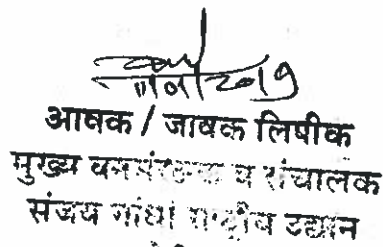 11/01/2019
आवक / जावक लिपीक
मुख्य वनसंरक्षक व संचालक
संजय गांधी राष्ट्रीय उद्यान